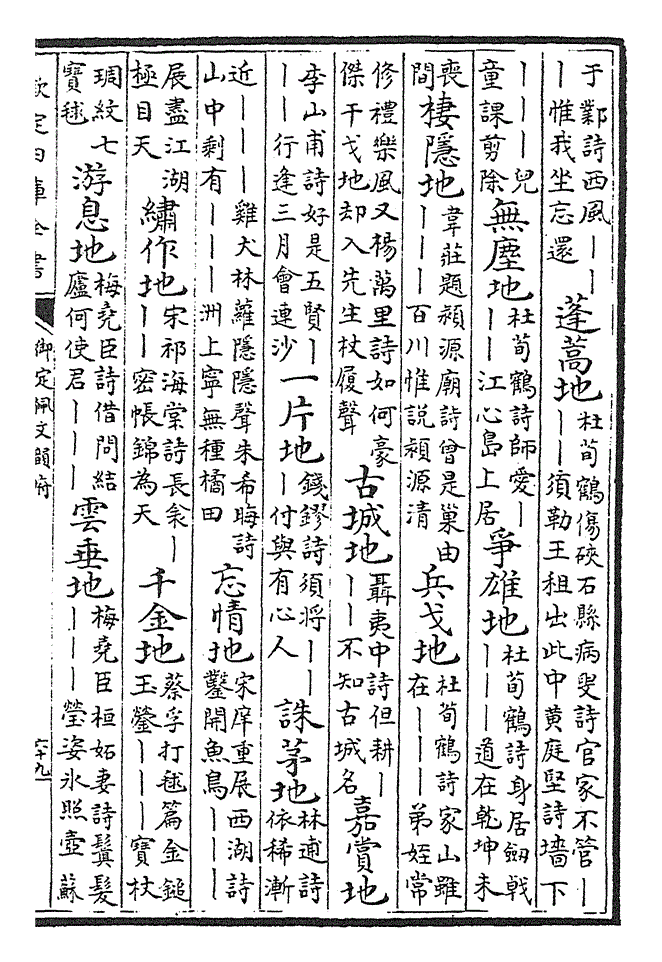 于鄴詩西風｜｜｜惟我坐忘還 蓬蒿地 杜荀鶴傷硤石縣病叟詩官家不管｜｜｜須勒王租出此中黄庭堅詩墻下
｜｜｜兒童課剪除 無塵地 杜荀鶴詩師愛｜｜｜江心島上居 爭雄地 杜荀鶴詩身居劒戟｜｜｜道在乾坤未
喪間 棲隱地 韋莊題潁源廟詩曾是巢由｜｜｜百川惟説潁源清 兵戈地 杜荀鶴詩家山雖在｜｜｜弟姪常
修禮樂風又楊萬里詩如何豪傑干戈地却入先生杖履聲 古城地 聶夷中詩但耕｜｜｜不知古城名 嘉賞地
李山甫詩好是五賢｜｜｜行逢三月會連沙 一片地 錢鏐詩須將｜｜｜付與有心人 誅茅地 林逋詩依稀漸
近｜｜｜雞犬林蘿隱隱聲朱希晦詩山中剩有｜｜｜洲上寧無種橘田 忘情地 宋庠重展西湖詩鑿開魚鳥｜｜｜
展盡江湖極目天 繡作地 宋祁海棠詩長衾｜｜｜密帳錦為天 千金地 蔡孚打毬篇金鎚玉鎣｜｜｜寶杖
琱紋七寶毬 游息地 梅堯臣詩借問結廬何使君｜｜｜ 雲垂地 梅堯臣桓妬妻詩鬒髮｜｜｜瑩姿氷照壺蘇
欽定四庫全書 御定佩文韻府 六十九